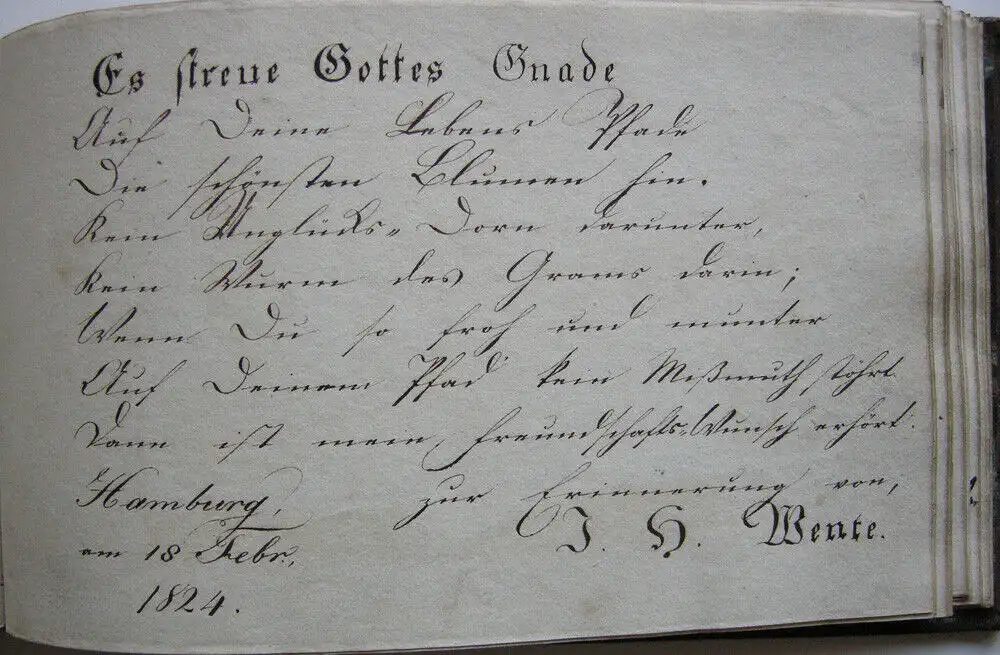 Es streue Gottes Gnade
Auf Deine Lebens Pfade
Die schönsten Blumen hin.
Kein Unglücks„ Dorn darunter,
Kein Wurm des Grams darin;
Wenn Du so froh und munter
Auf Deinem Pfad kein Mißmuth stöhrt
Dann ist mein, Freundschafts„Wunsch erhört.
Hamburg, zur Erinnerung von,
am 18 Febr., J. H. Wente.
1824.